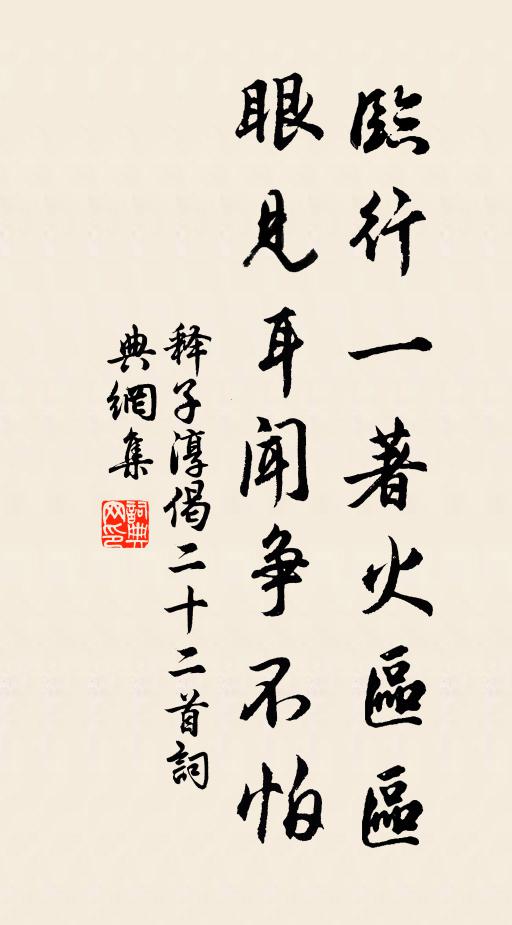 臨行一著火區區
眼見耳聞争不怕
释子淳偈二十二首詞
典網集
詞典网印